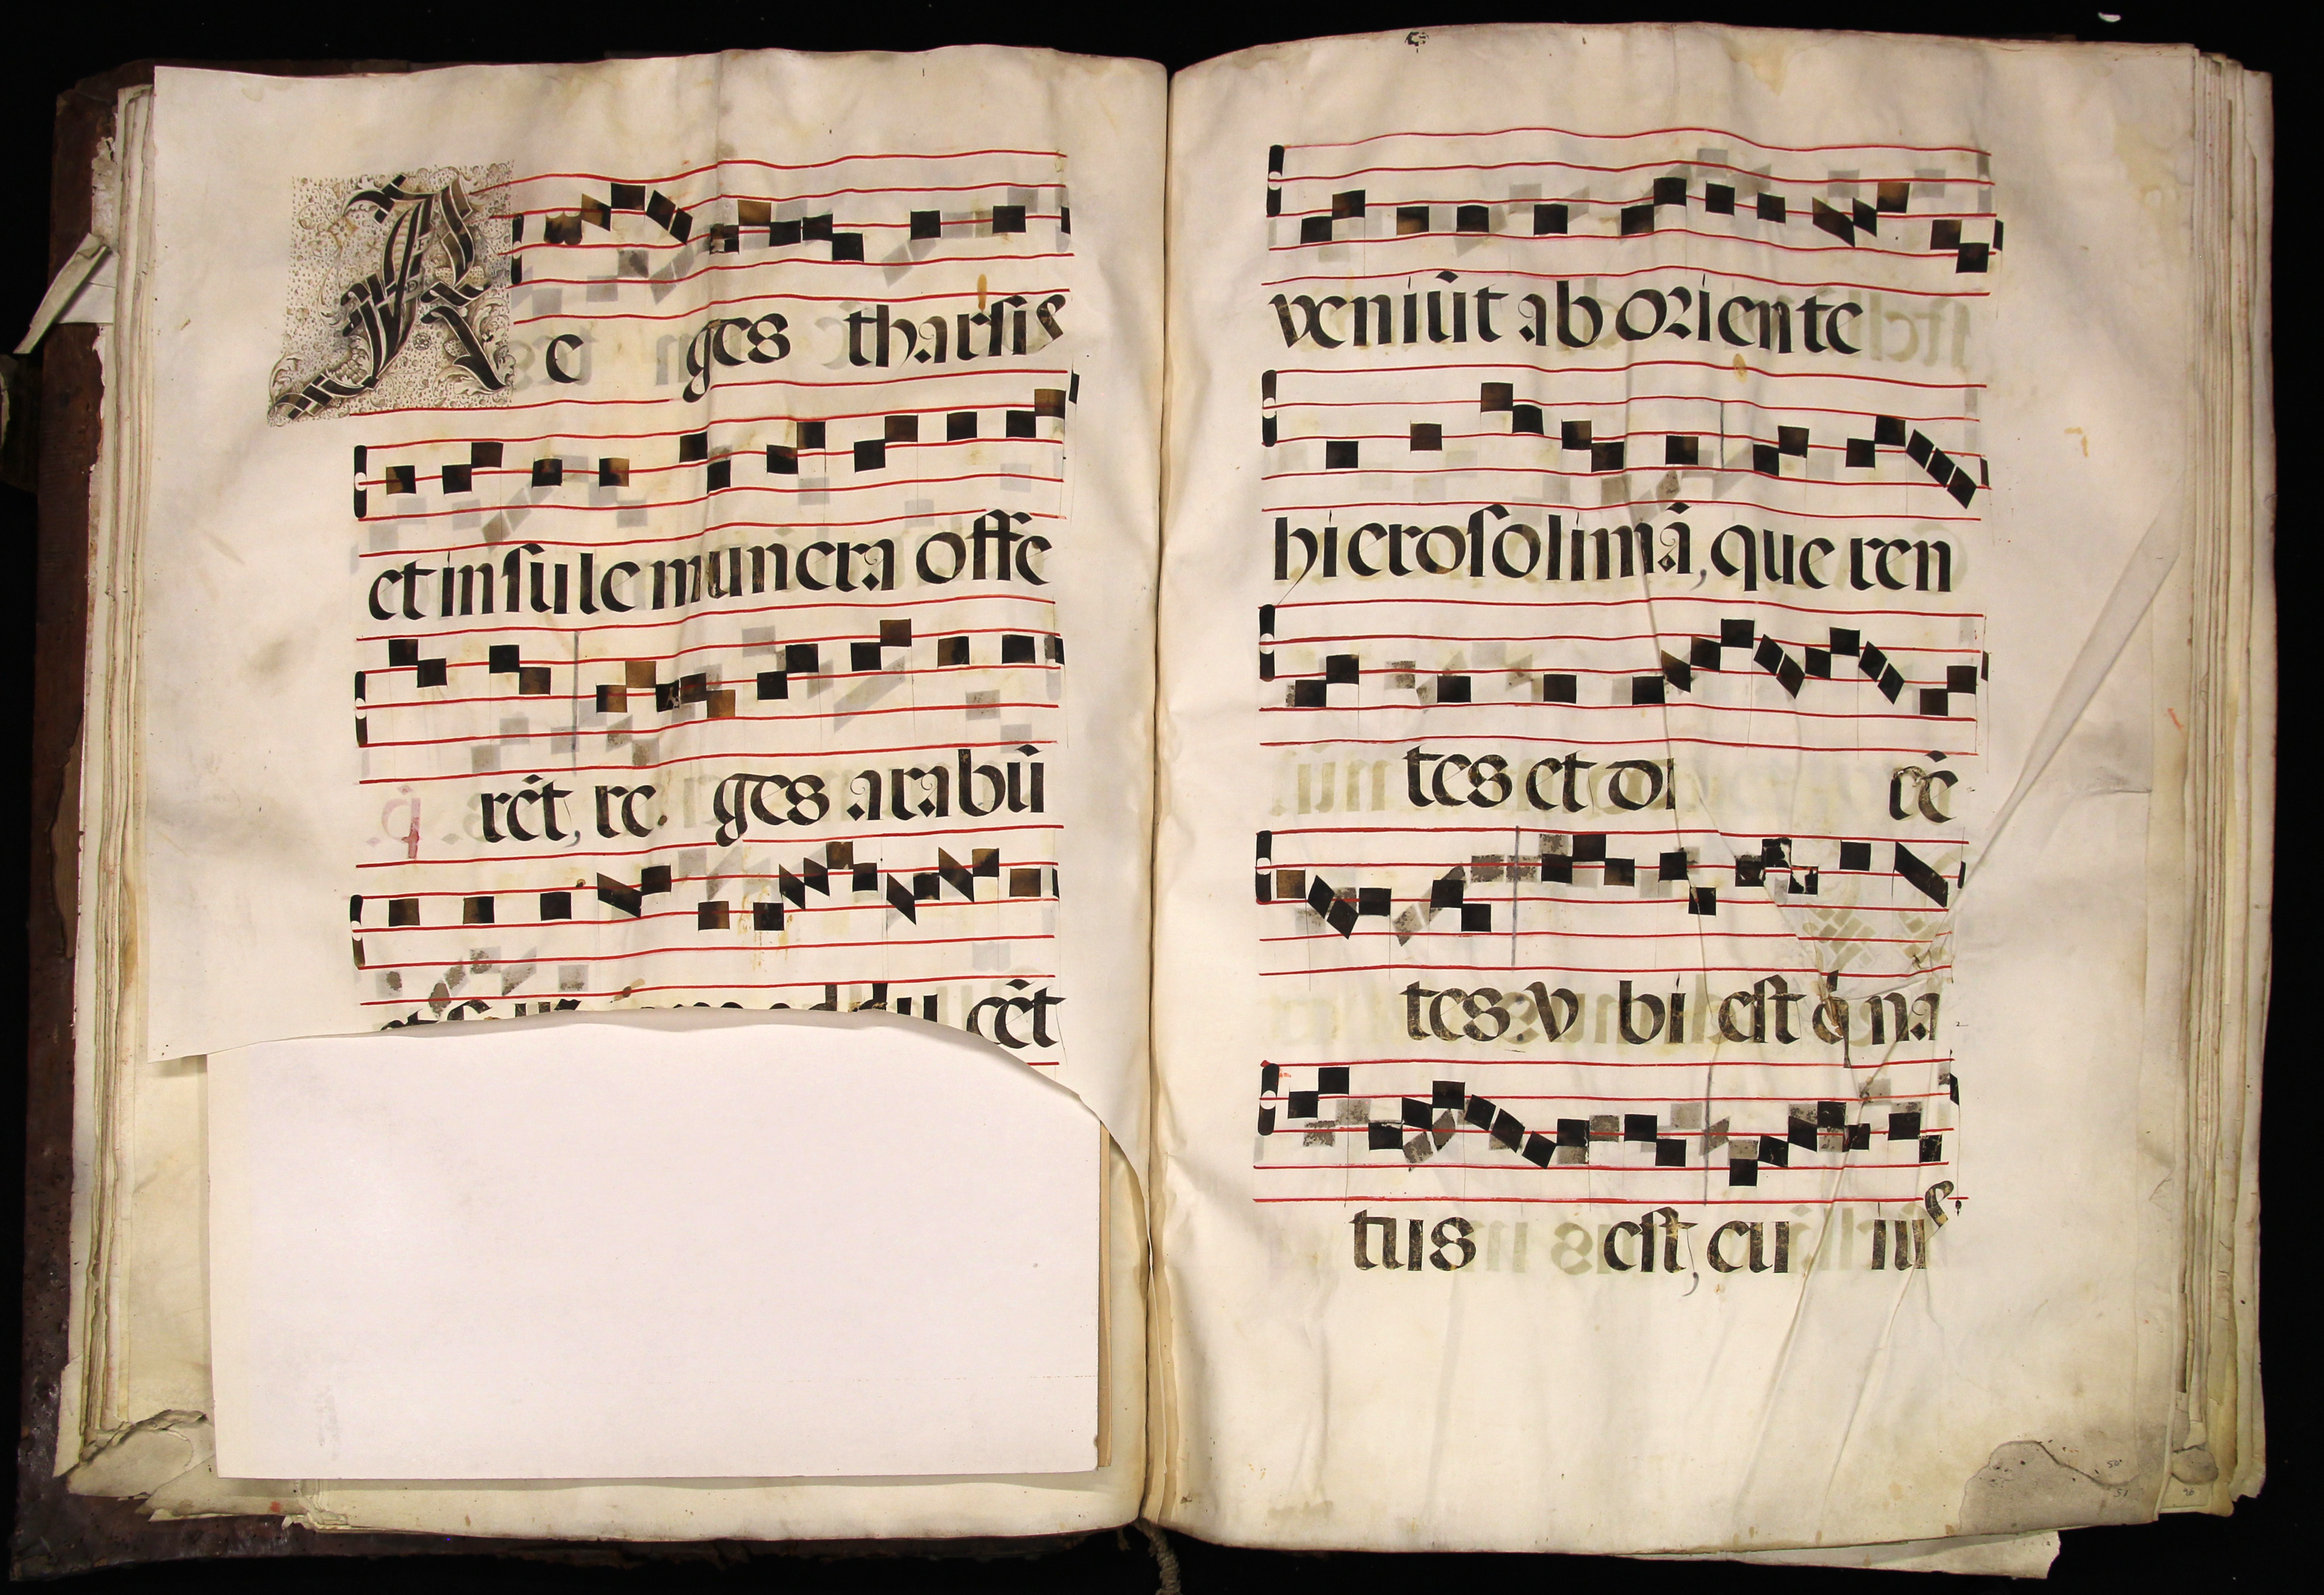 Re ges tharsis
et insule munera offe
rẽt, re. ges arabũ
cẽt
veniũt ab oriente
hierosolimã, que ren
tes et di cẽ
tes. v bi est q̇ na
tus est, cu ius